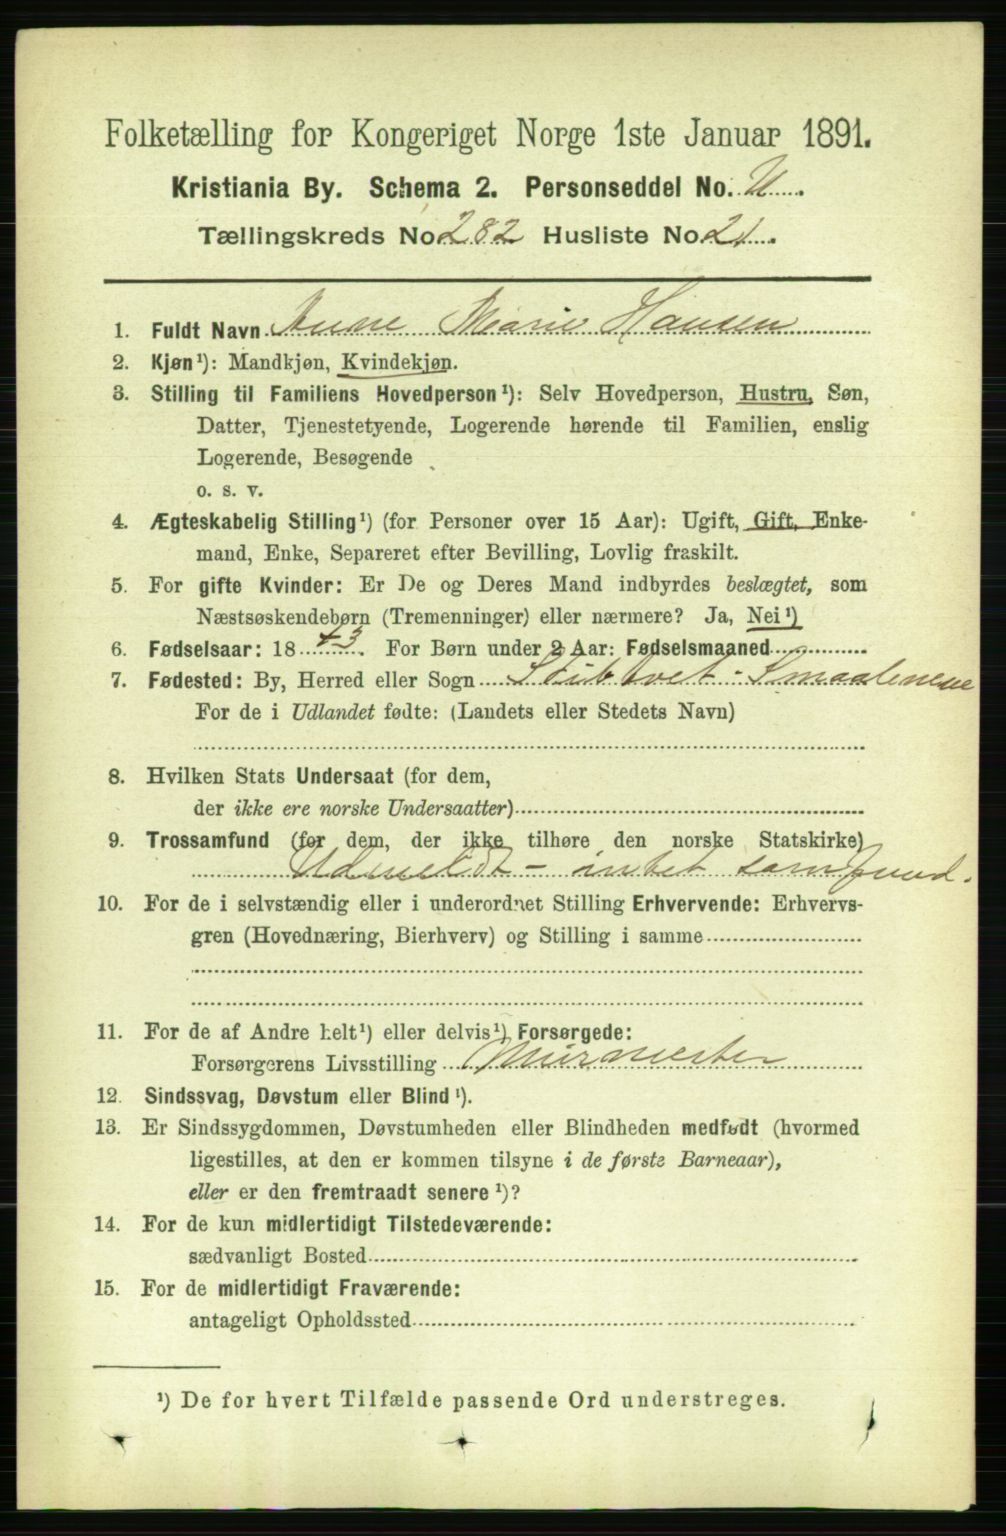 Folketælling for Kongeriget Norge 1ste Januar 1891.
Kristiania By. Schema 2. Personseddel No. U.
Tællingskreds No. 282 Husliste No. 21.
1. Fuldt Navn Anne Marie Hansen
2. Kjøn¹): Mandkjøn, Kvindekjøn.
3. Stilling til Familiens Hovedperson¹): Selv Hovedperson, Hustru, Søn,
Datter, Tjenestetyende, Logerende hørende til Familien, enslig
Logerende, Besøgende
o. s. v.
4. Ægteskabelig Stilling¹) (for Personer over 15 Aar): Ugift, Gift, Enke-
mand, Enke, Separeret efter Bevilling, Lovlig fraskilt.
5. For gifte Kvinder: Er De og Deres Mand indbyrdes beslægtet, som
Næstsøskendebørn (Tremenninger) eller nærmere? Ja, Nei¹)
6. Fødselsaar: 1843. For Børn under 2 Aar: Fødselsmaaned
7. Fødested: By, Herred eller Sogn Skibtvet - Smaalenene
For de i Udlandet fødte: (Landets eller Stedets Navn)
8. Hvilken Stats Undersaat (for dem,
der ikke ere norske Undersaatter)
9. Trossamfund (for dem, der ikke tilhøre den norske Statskirke)
Udmeldt - intet samfund.
10. For de i selvstændig eller i underordnet Stilling Erhvervende: Erhvervs-
gren (Hovednæring, Bierhverv) og Stilling i samme
11. For de af Andre helt¹) eller delvis¹) Forsørgede:
Forsørgerens Livsstilling Murmester
12. Sindssvag, Døvstum eller Blind¹).
13. Er Sindssygdommen, Døvstumheden eller Blindheden medfødt (hvormed
ligestilles, at den er kommen tilsyne i de første Barneaar),
eller er den fremtraadt senere¹)?
14. For de kun midlertidigt Tilstedeværende:
sædvanligt Bosted
15. For de midlertidigt Fraværende:
antageligt Opholdssted
¹) De for hvert Tilfælde passende Ord understreges.